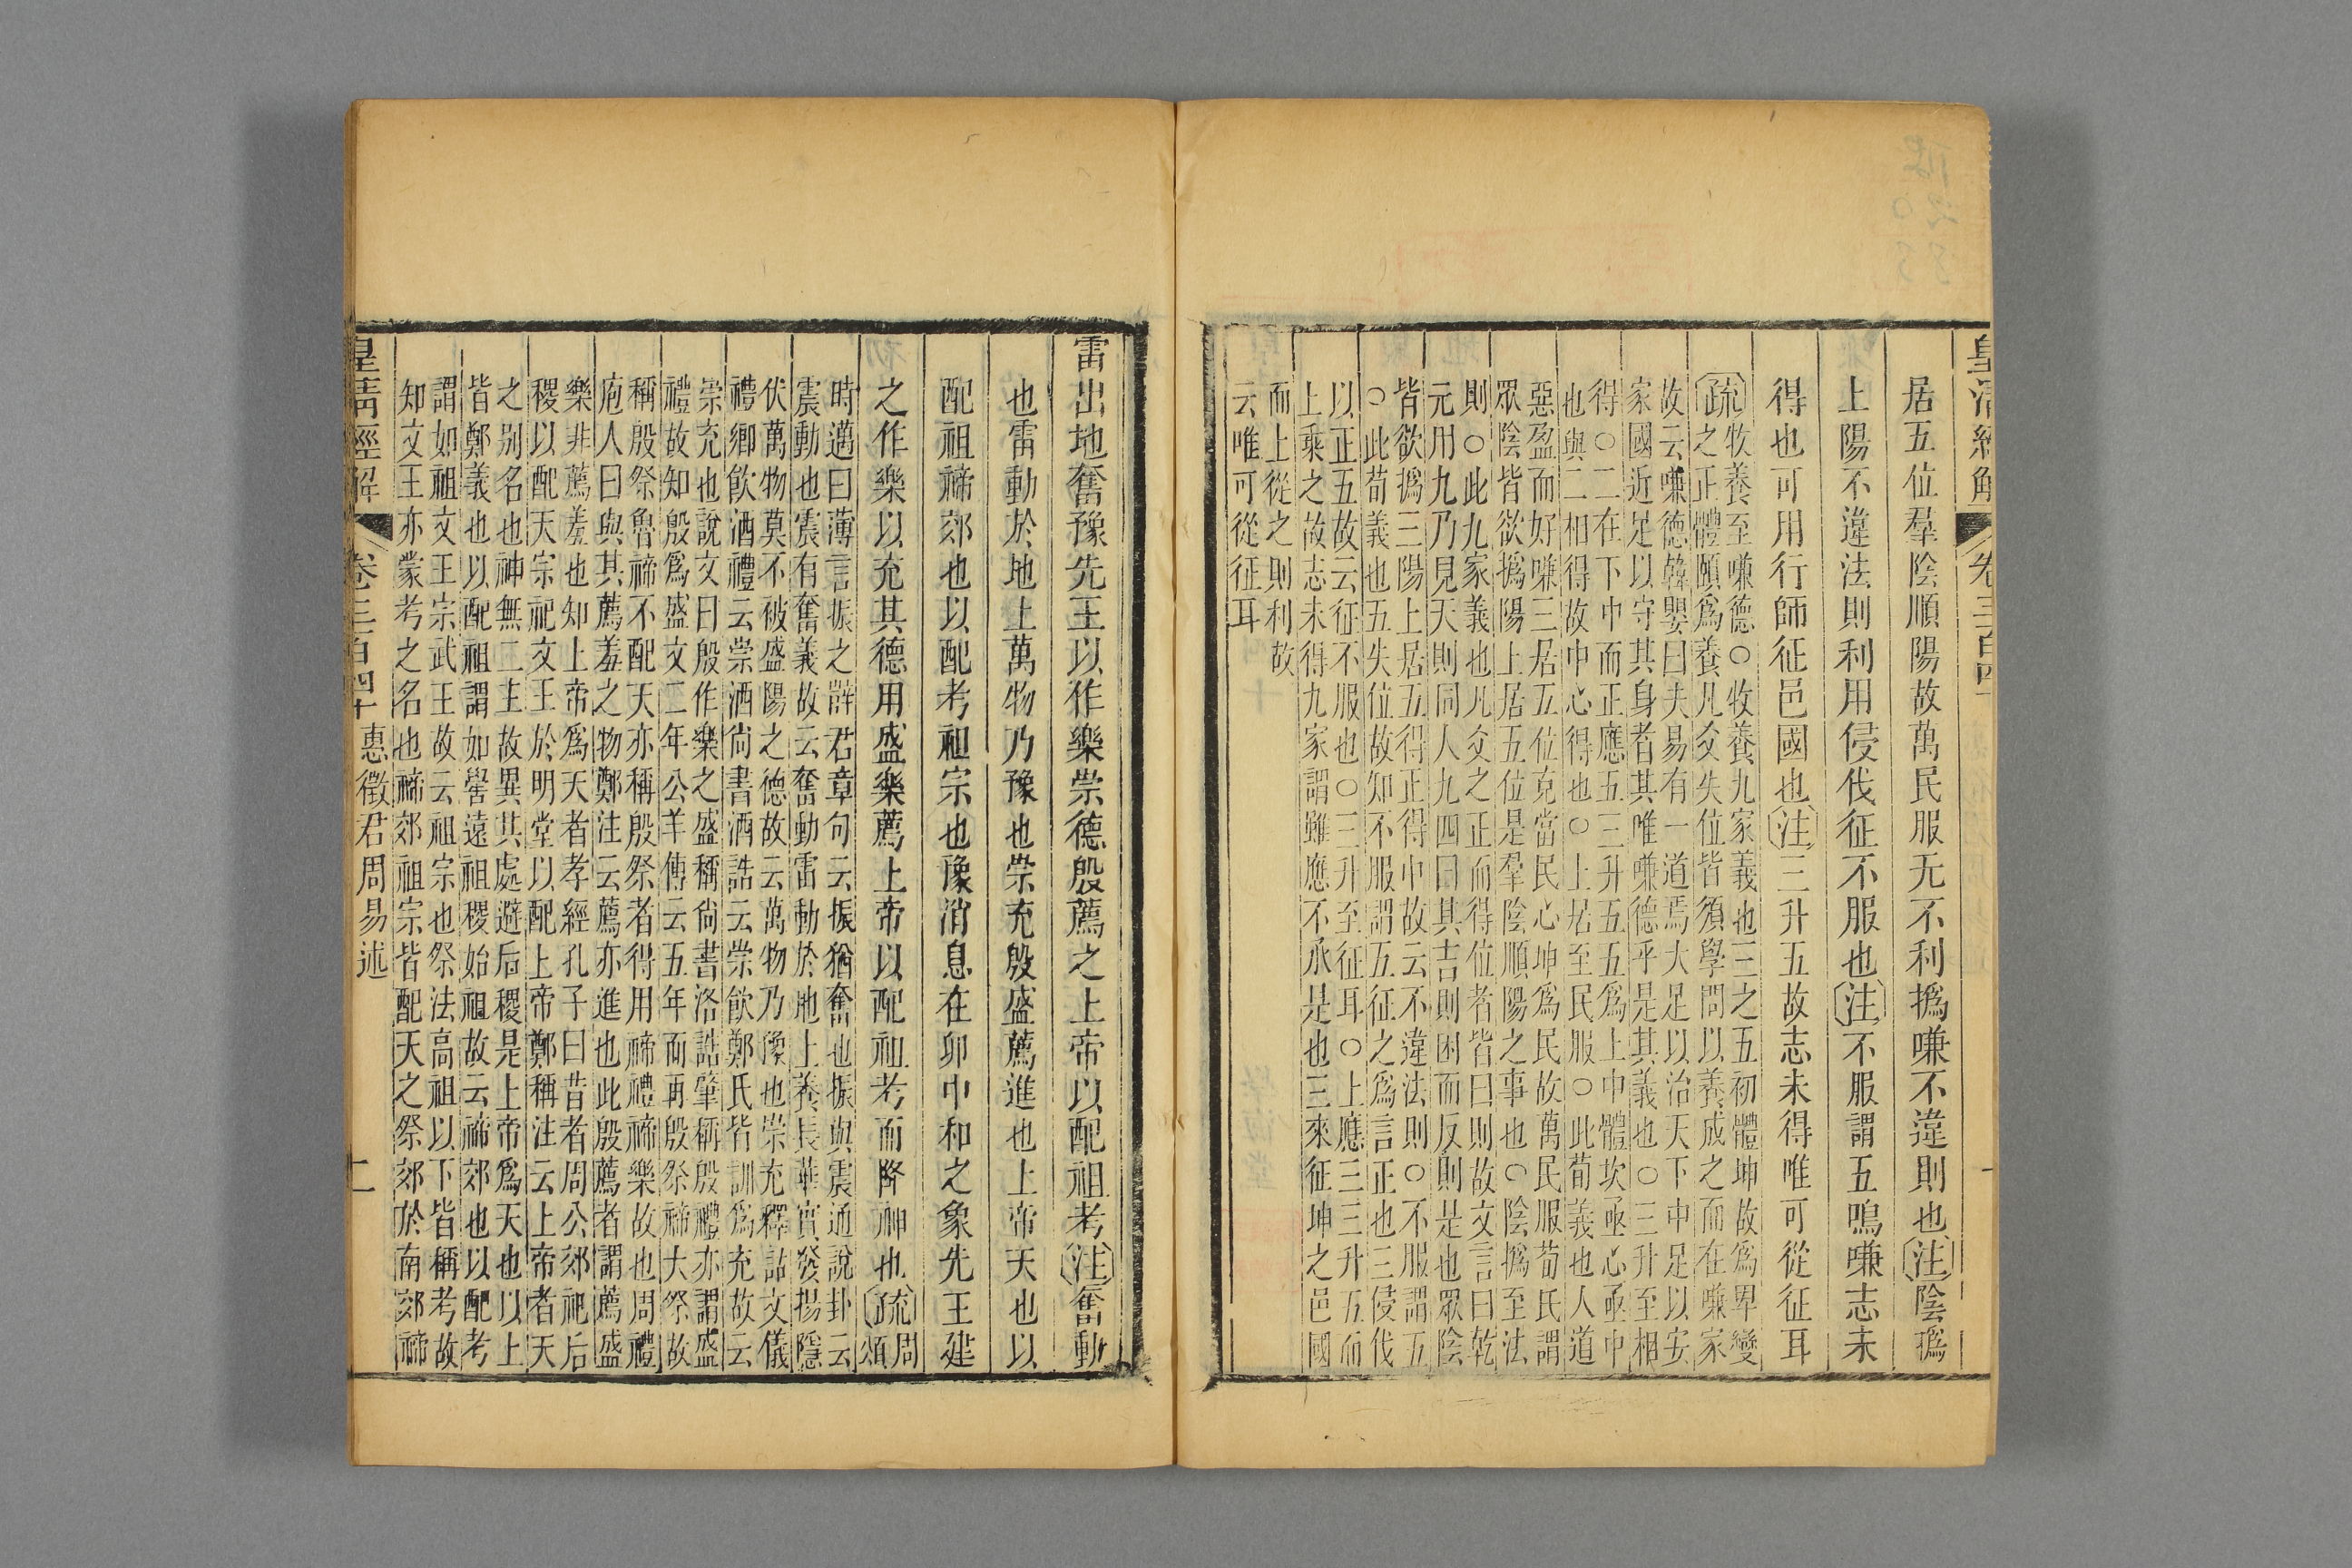 皇清經解 卷三百四
居五位羣陰順陽故萬民服无不利撝嗛不違則也注陰撝
上陽不違法則利用侵伐征不服也注不服謂五鳴嗛志未
得也可用行師征邑國也注三升五故志未得唯可從征耳
疏牧養至嗛德○牧養九家義也三之五初體坤故爲卑變
之正體頤爲養凡爻失位皆須學問以養成之而在嗛家
故云嗛德韓嬰曰夫易有一道焉大足以治天下中足以安
家國近足以守其身者其唯嗛德乎是其義也○三升至相
得○二在下中而正應五三升五五爲上中體坎亟心亟中
也與二相得故中心得也○上居至民服○此荀義也人道
惡盈而好嗛三居五位克當民心坤爲民故萬民服荀氏謂
眾陰皆欲撝陽上居五位是羣陰順陽之事也○陰撝至法
則○此九家義也凡爻之正而得位者皆曰則故文言曰乾
元用九乃見天則同人九四曰其吉則困而反則是也眾陰
皆欲撝三陽上居五得正得中故云不違法則○不服謂五
○此荀義也五失位故知不服謂五征之爲言正也三侵伐
以正五故云征不服也○三升至征耳○上應三三升五而
上乘之故志未得九家謂雖應不承是也三來征坤之邑國
而上從之則利故
云唯可從征耳
雷出地奮豫先王以作樂崇德殷薦之上帝以配祖考注奮動
也雷動於地上萬物乃豫也崇充殷盛薦進也上帝天也以
配祖禘郊也以配考祖宗也豫消息在卯中和之象先王建
之作樂以充其德用盛樂薦上帝以配祖考而降神也疏周頌
時邁曰薄言振之韓君章句云振猶奮也振與震通說卦云
震動也震有奮義故云奮動雷動於地上養長華實發揚隱
伏萬物莫不被盛陽之德故云萬物乃豫也崇充釋詁文儀
禮鄉飮酒禮云崇酒尙書酒誥云崇飮鄭氏皆訓爲充故云
崇充也說文曰殷作樂之盛稱尙書洛誥肇稱殷禮亦謂盛
禮故知殷爲盛文二年公羊傳云五年而再殷祭禘大祭故
稱殷祭魯禘不配天亦稱殷祭者得用禘禮禘樂故也周禮
庖人曰與其薦羞之物鄭注云薦亦進也此殷薦者謂薦盛
樂非薦羞也知上帝爲天者孝經孔子曰昔者周公郊祀后
稷以配天宗祀文王於明堂以配上帝鄭稱注云上帝者天
之别名也神無二主故異其處避后稷是上帝爲天也以上
皆鄭義也以配祖謂如嚳遠祖稷始祖故云禘郊也以配考
謂如祖文王宗武王故云祖宗也祭法高祖以下皆稱考故
知文王亦蒙考之名也禘郊祖宗皆配天之祭郊於南郊禘
皇清經解 卷三百四十 惠徵君周易述 二